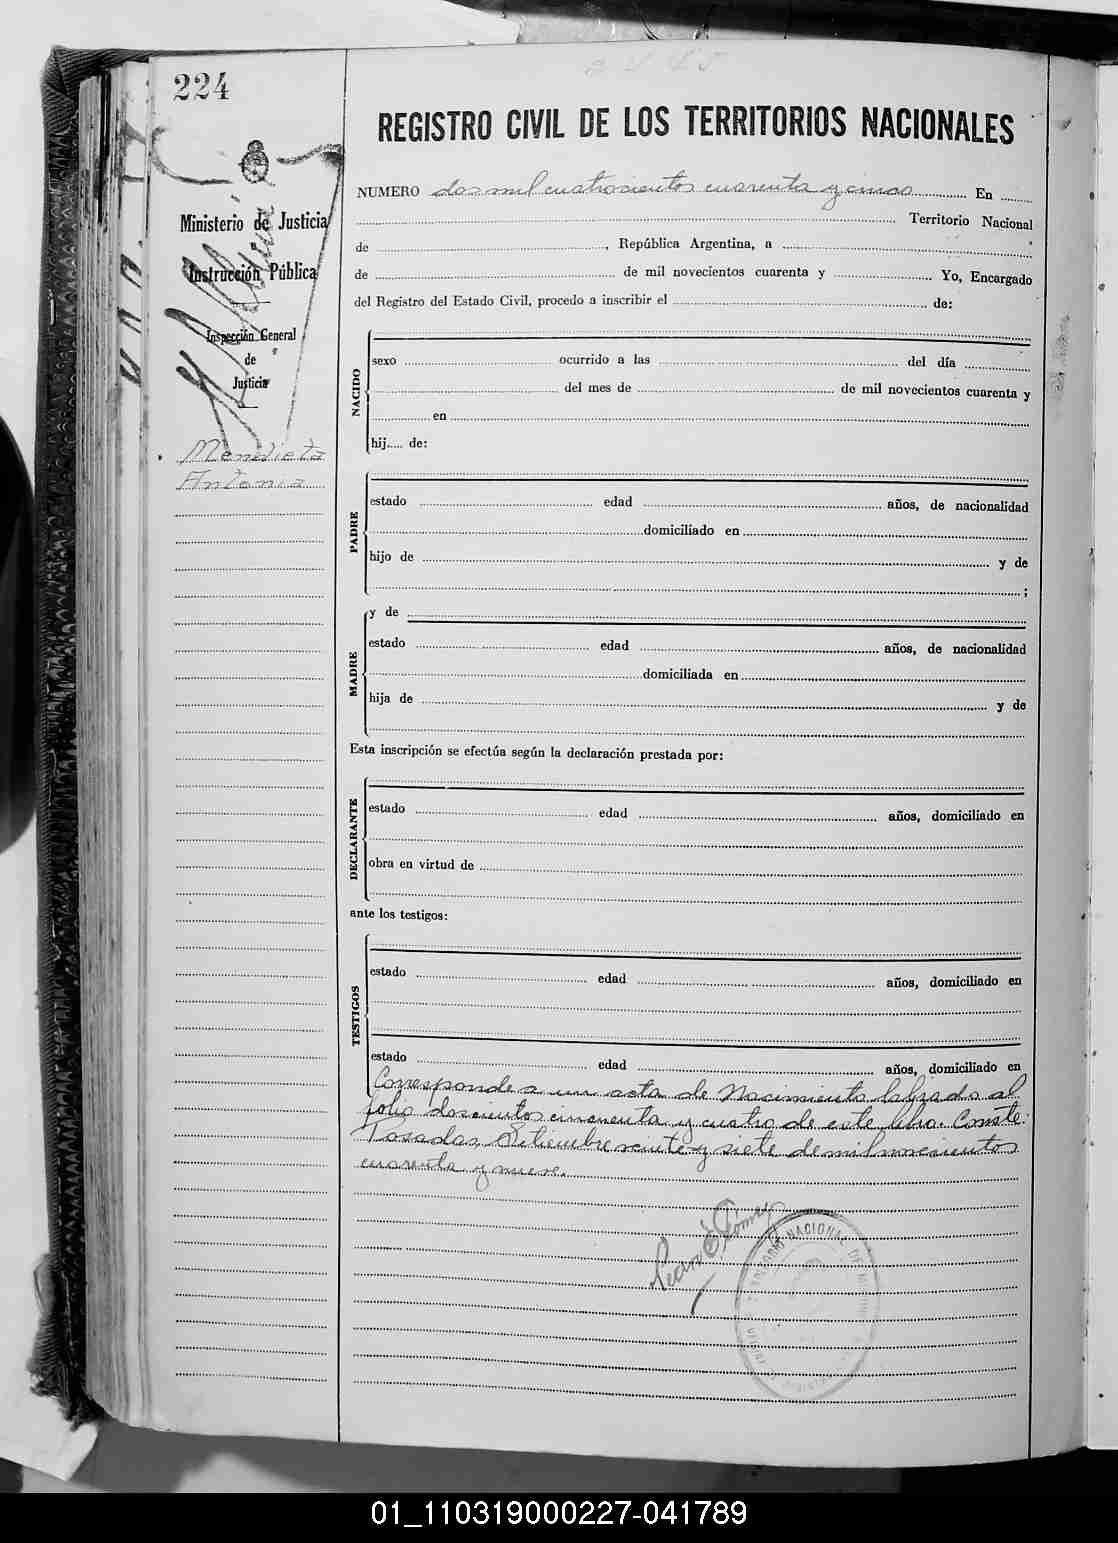 224
2445
REGISTRO CIVIL DE LOS TERRITORIOS NACIONALES
Ministerio de Justicia
Instrucción Pública
Inspección General
de
Justicia
Mendieta
Antonia
NUMERO dos mil cuatrocientos cuarenta y cinco En
Territorio Nacional
de , República Argentina, a
de de mil novecientos cuarenta y Yo, Encargado
del Registro del Estado Civil, procedo a inscribir el de:
NACIDO
sexo ocurrido a las del día
del mes de de mil novecientos cuarenta y
en
hij..... de:
PADRE
estado edad años, de nacionalidad
domiciliado en
hijo de y de
;
MADRE
y de
estado edad años, de nacionalidad
domiciliada en
hija de y de
Esta inscripción se efectúa según la declaración prestada por:
DECLARANTE
estado edad años, domiciliado en
obra en virtud de
ante los testigos:
TESTIGOS
estado edad años, domiciliado en
estado edad años, domiciliado en
Corresponde a un acta de Nacimiento labrada al
folio doscientos cincuenta y cuatro de este libro. Conste:
Posadas, Setiembre veinte y siete de mil novecientos
cuarenta y nueve.
Gómez
NACIONAL DE
01_110319000227-041789